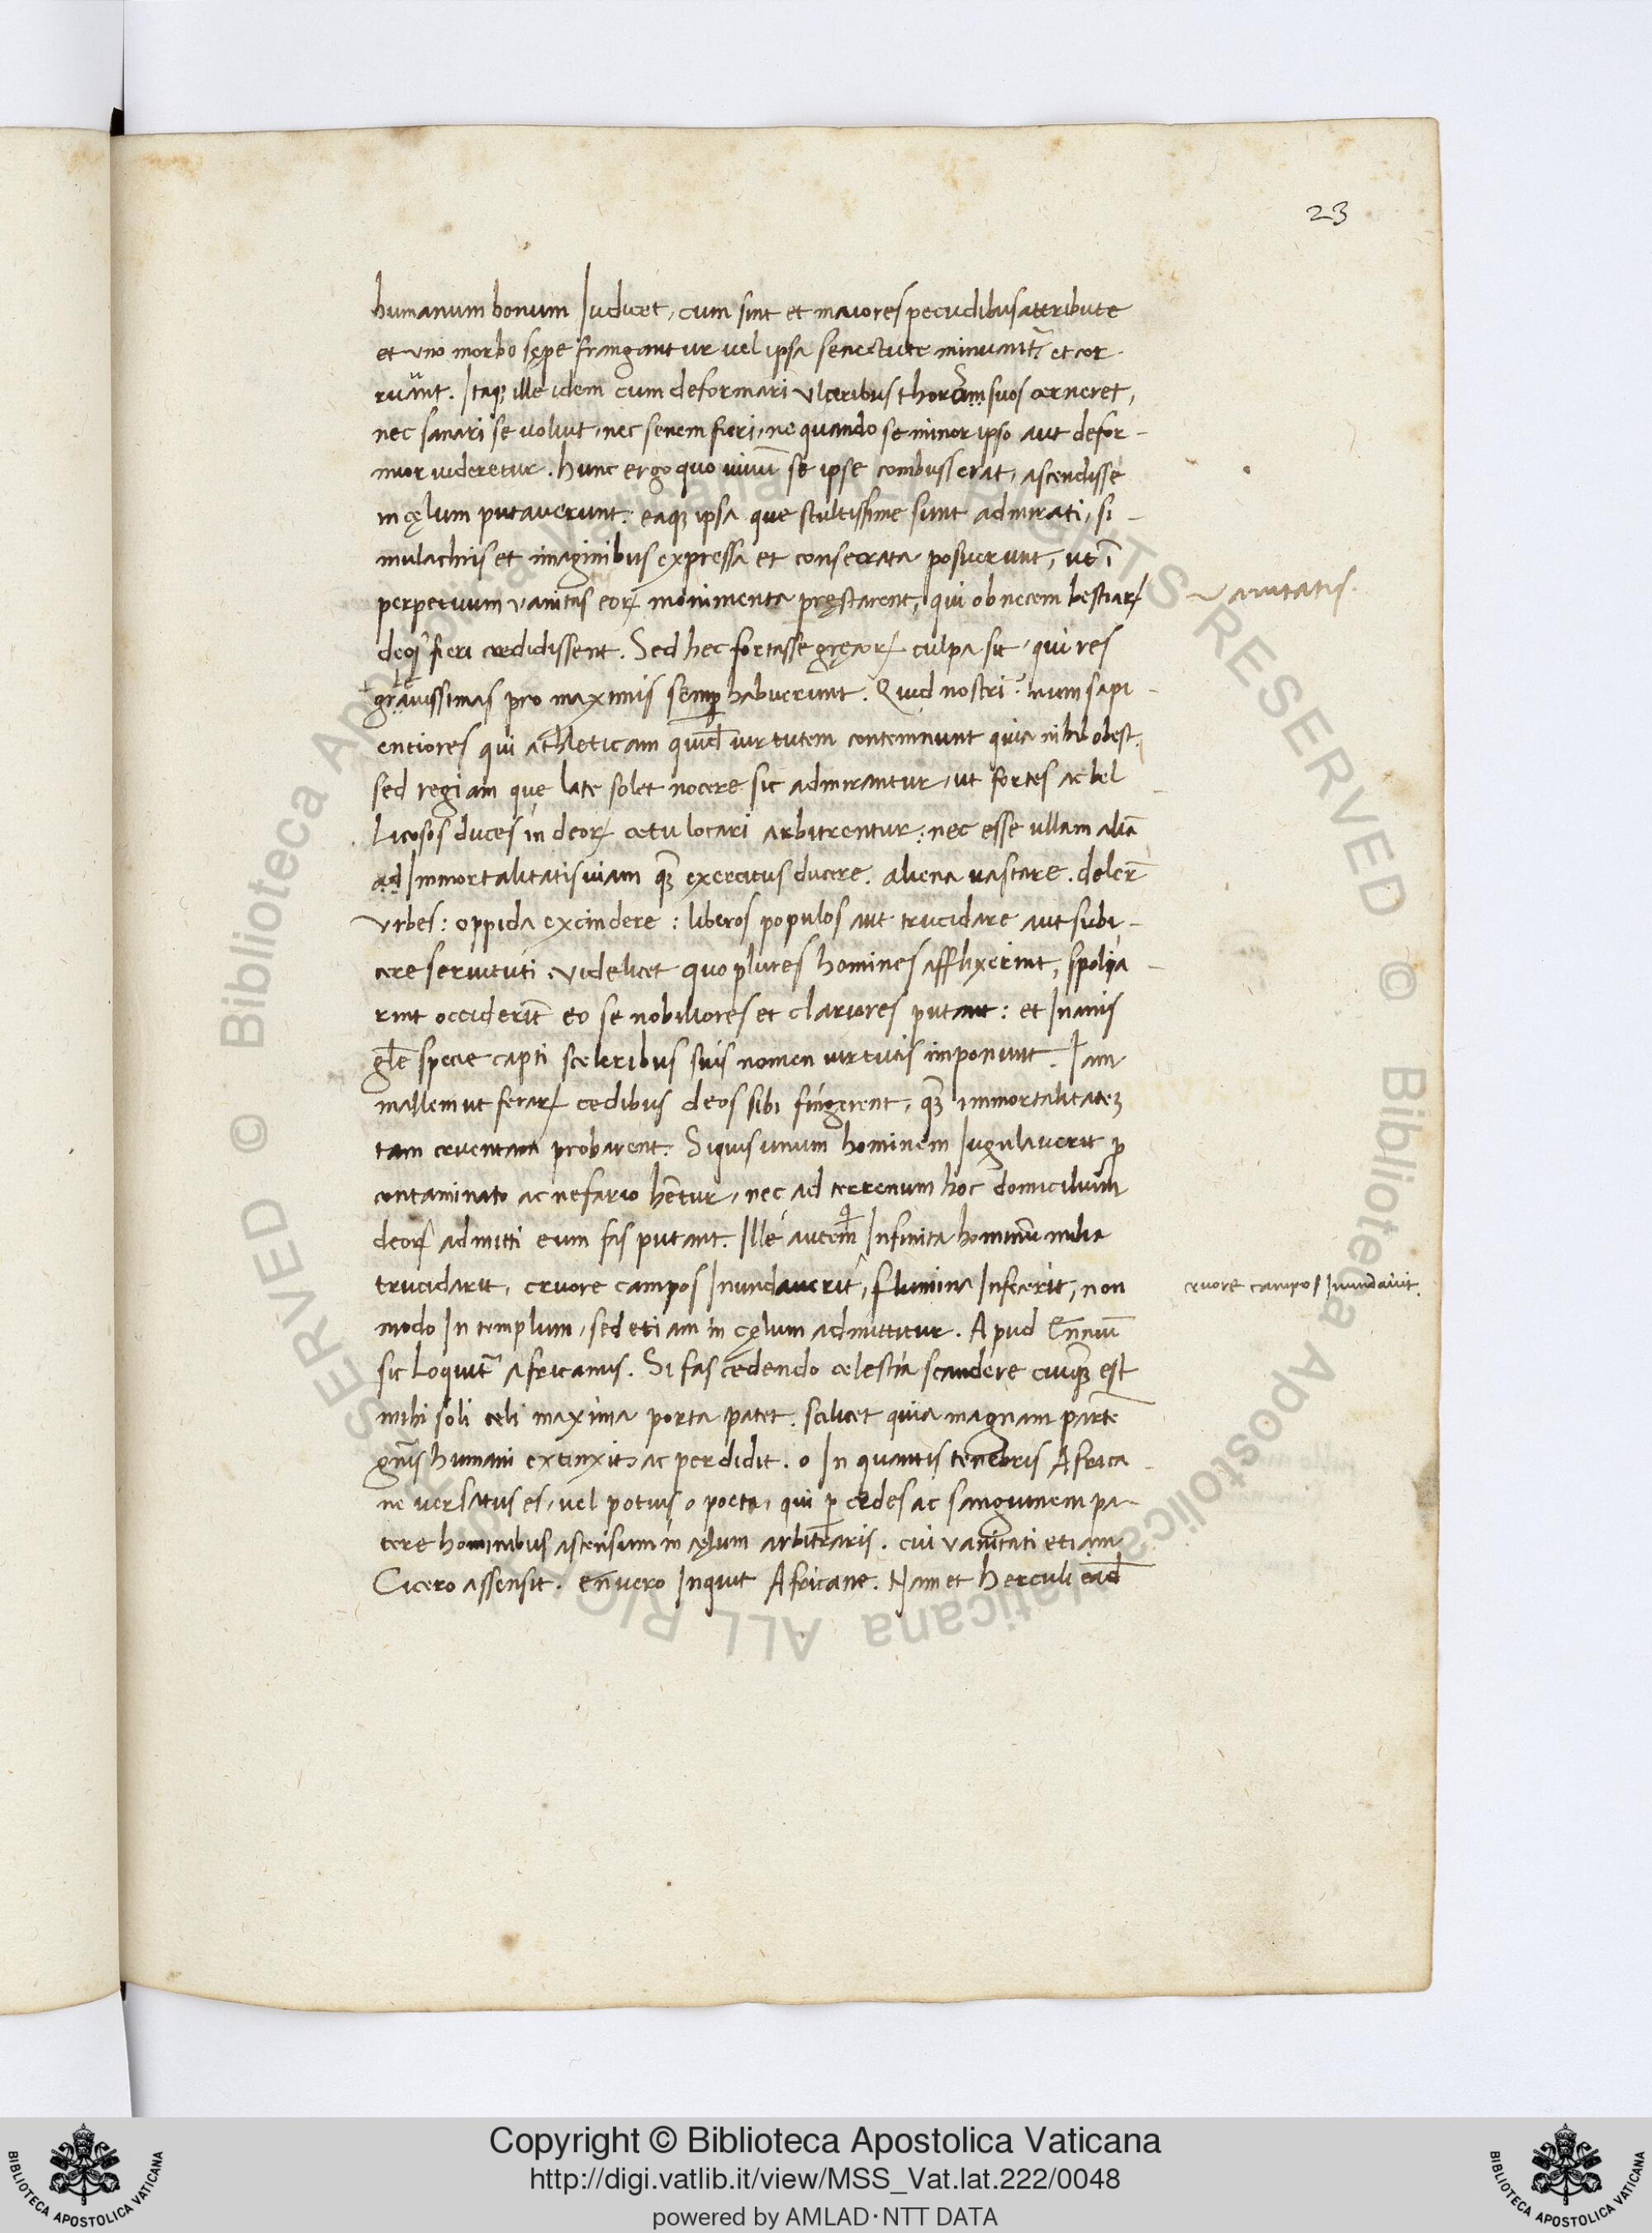 23
humanum bonum Iudicet, cum sint et maiores pecudibus attribute
et vno morbo sępe frangantur uel ipsa senectute minuant᷑ et cor-
ruant. Itaqȝ ille idem cum deformari vlceribus thoros suos cerneret,
nec sanari se voluit, nec senem fieri, ne quando se minor ipso aut defor-
mior uideretur. hunc ergo quo uiuū se ipse combusserat, ascendisse
in cęlum putauerunt: eaqȝ ipsa que stultissime sunt admirati, si-
mulachris et imaginibus expressa et consecrata posuerunt, ut ī
perpetuum vanitas eoꝝ monimenta pręstarent, qui ob necem bestiaꝝ
vanitatis.
deos fieri credidissent. Sed hec fortasse gręcoꝝ culpa sit, qui res
grauissimas pro maximis semꝑ habuerunt. Quid nostri? num sapi-
entiores qui athleticam quid̄ uirtutem contemnunt quia nihil obest.
sed regiam quę late solet nocere sic admirantur, ut fortes ac bel-
licosos duces in deoꝝ cetu locari arbitrentur: nec esse ullam aliā
ad Immortalitatis uiam qȝ̄ exercitus ducere. aliena uastare. deler̄
vrbes: oppida excindere: liberos populos aut trucidare aut subi-
cere seruituti. videlicet quo plures homines afflixerint, spolia-
rint occiderīt eo se nobiliores et clariores putant: et Inanis
gl̄e specie capti sceleribus suis nomen uirtutis imponunt. Iam
mallem ut feraꝝ cedibus deos sibi fingerent, qȝ̄ immortalitateȝ
tam cruentam probarent. Siquis unum hominem Iugulauerit ꝓ
contaminato ac nefario hētur, nec ad terrenum hoc domicilium
deoꝝ admitti eum fas putant. Ille autem Infinita hominū milia
trucidarit, cruore campos Inundauerit, flumina Infecerit, non
cruore campos Inundauit.
modo In templum, sed etiam in cęlum admittitur. Apud Enniū
sic Loquit᷑ Africanus. Si fas cedendo celestia scandere cuiqȝ̄ est
mihi soli celi maxima porta patet. scilicet quia magnam partē
gn̄is humani extinxit ac perdidit. o In quantis tenebris Africa-
ne versatus es, uel potius o poeta, qui ꝑ cedes ac sanguinem pa-
tere hominibus ascensum in cęlum arbitraris. cui vanitati etiam
Cicero assensit. En̄uero Inquit Africane. Nam et Herculi ead̄
Copyright © Biblioteca Apostolica Vaticana
http://digi.vatlib.it/view/MSS_Vat.lat.222/0048
powered by AMLAD·NTT DATA